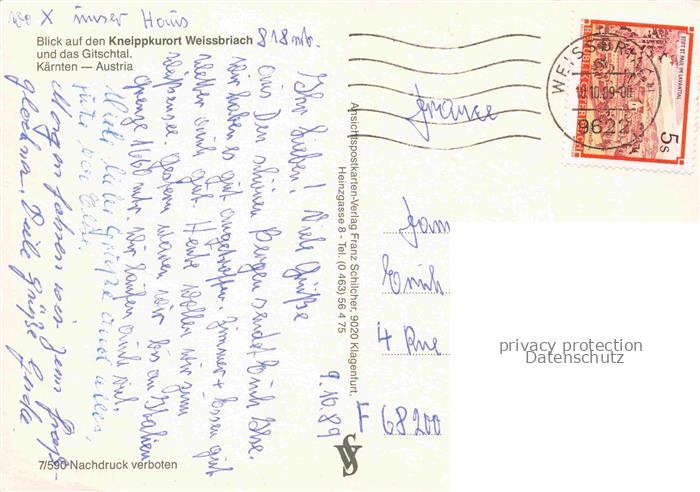 wo X unser Haus
Blick auf den Kneippkurort Weissbriach 818 mt.
und das Gitschtal.
Kärnten — Austria
9.10.89
Ihr Lieben! Viele Grüße
aus den schönen Bergen sendet Euch Ilse.
wir haben es gut angetroffen. Zimmer + Essen gut
Wetter auch gut. Heute wollen wir zum
Weißensee. Gestern waren wir bis an Italien
Grenze 1600 mtr. Wir laufen auch viel.
Viele liebe Grüße und alles,
Gute
Morgen fahren wir zum Groß-
glockner. Viele Grüße Gerda
7/590 Nachdruck verboten
Ansichtspostkarten-Verlag Franz Schilcher, 9020 Klagenfurt,
Heinzgasse 8 - Tel. (0 463) 56 4 75
WEISSBRIACH
10.89-00
9622
STIFT ST. PAUL IM LAVANTTAL
REPUBLIK ÖSTERREICH
5 S
France
Fam
4 Rue
F 68200
privacy protection
Datenschutz